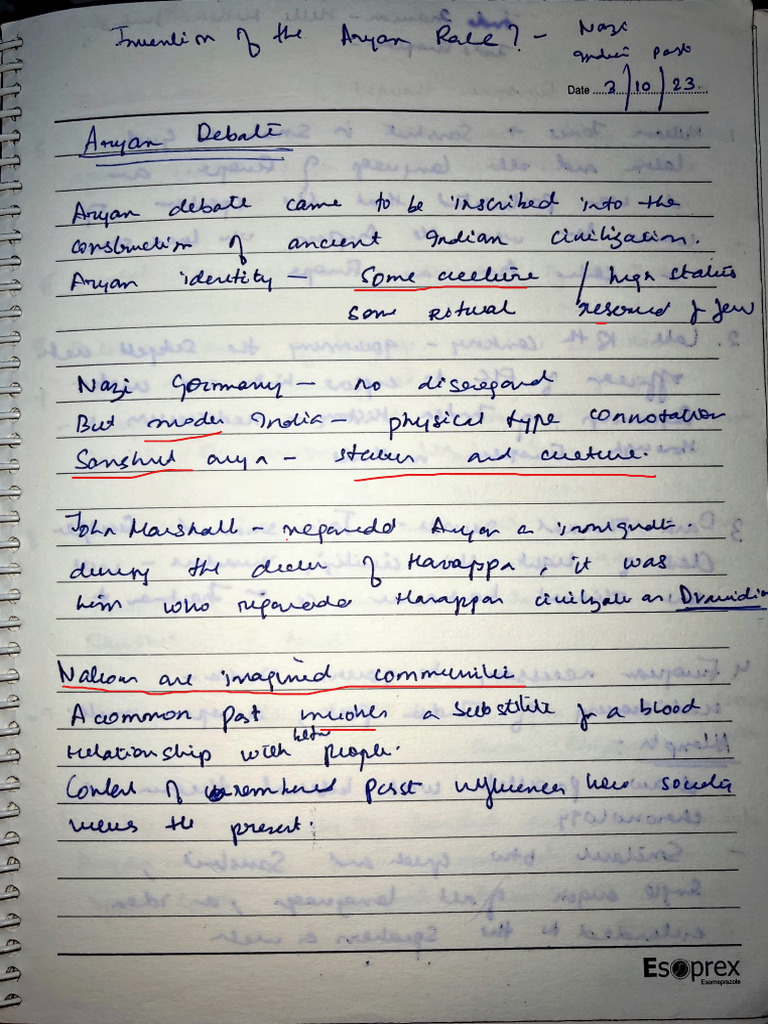 Invention of the Aryan Race? - Nazi
Indian past
Date 3/10/23
Aryan Debate
Aryan debate came to be inscribed into the
construction of ancient Indian civilization.
Aryan identity - Some culture / high status
some ritual / reserved f few
Nazi Germany - no disregard
But moder India - physical type connotation
Sanskrit arya - status and culture.
John Marshall - regarded Aryan as immigrant
during the decline of Harappa, it was
him who regarded Harappan civilization as Dravidian
Nations are imagined communities
A common past involves a substitute for a blood
relationship with people.
Content of remembered past influences how society
views the present.
Esoprex
Esomeprazole